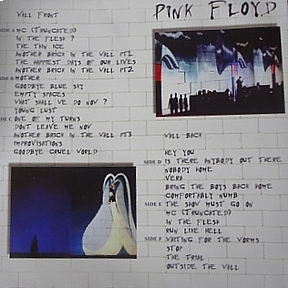 WALL FRONT
SIDE A MC (TRUNCATED)
IN THE FLESH ?
THE THIN ICE
ANOTHER BRICK IN THE WALL PT1
THE HAPPIEST DAYS OF OUR LIVES
ANOTHER BRICK IN THE WALL PT2
SIDE B MOTHER
GOODBYE BLUE SKY
EMPTY SPACES
WHAT SHALL WE DO NOW ?
YOUNG LUST
SIDE C ONE OF MY TURNS
DONT LEAVE ME NOW
ANOTHER BRICK IN THE WALL PT3
IMPROVISATIONS
GOODBYE CRUEL WORLD
PINK FLOYD
WALL BACK
HEY YOU
SIDE D IS THERE ANYBODY OUT THERE
NOBODY HOME
VERA
BRING THE BOYS BACK HOME
COMFORTABLY NUMB
SIDE E THE SHOW MUST GO ON
MC (TRUNCATED)
IN THE FLESH
RUN LIKE HELL
SIDE F WAITING FOR THE WORMS
STOP
THE TRIAL
OUTSIDE THE WALL